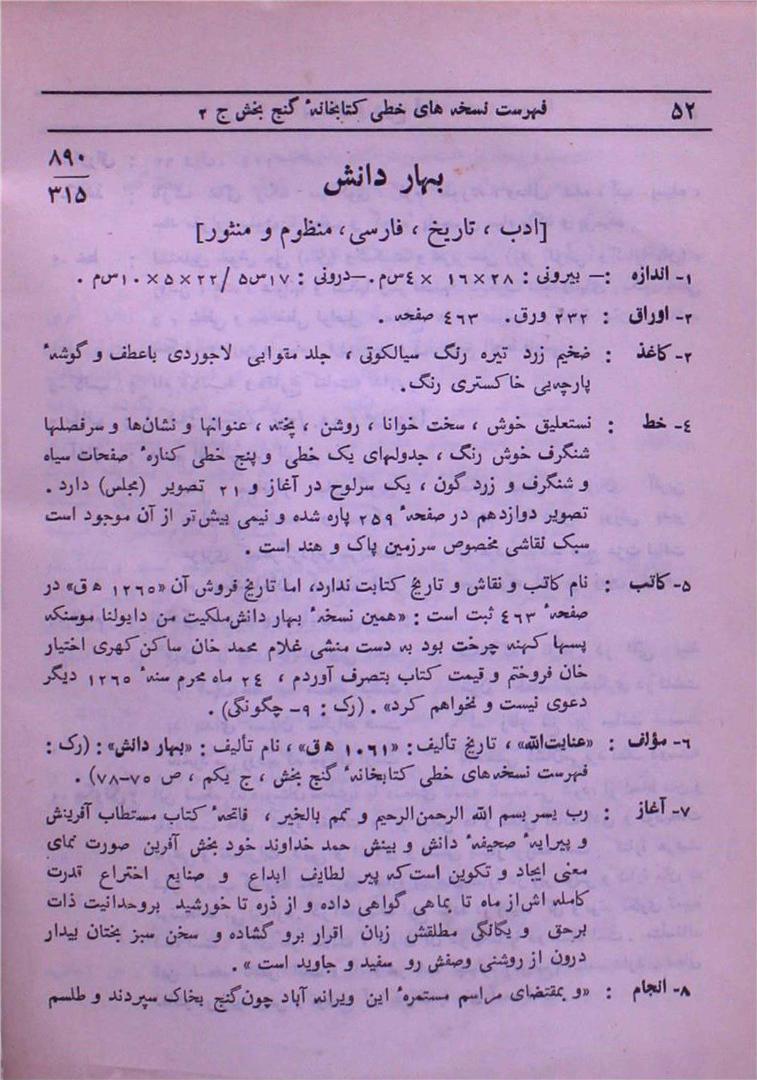 ۵۲ فهرست نسخه های خطی کتابخانهٔ گنج بخش ج ۲
۸۹۰
۳۱۵
بهار دانش
[ادب ، تاریخ ، فارسی، منظوم و منثور]
۱- اندازه :— بیرونی : ۲۸×۱۶ ×۴س‌م.—درونی : ۱۷س۵/۲۲×۵×۱۰س‌م .
۲- اوراق : ۲۳۲ ورق. ۴۶۳ صفحه .
۳- کاغذ : ضخیم زرد تیره رنگ سیالکوتی ، جلد مقوایی لاجوردی باعطف و گوشهٔ
پارچه‌یی خاکستری رنگ.
۴- خط : نستعلیق خوش ، سخت خوانا ، روشن ، پخته ، عنوانها و نشان‌ها و سرفصلها
شنگرف خوش رنگ ، جدولهای یک خطی و پنج خطی کنارهٔ صفحات سیاه
و شنگرف و زرد گون ، یک سرلوح در آغاز و ۲۱ تصویر (مجلس) دارد .
تصویر دوازدهم در صفحهٔ ۲۵۹ پاره شده و نیمی بیش‌تر از آن موجود است
سبک نقاشی مخصوص سرزمین پاک و هند است .
۵- کاتب : نام کاتب و نقاش و تاریخ کتابت ندارد، اما تاریخ فروش آن «۱۲۶۵ ه‍ ق» در
صفحهٔ ۴۶۳ ثبت است : «همین نسخهٔ بهار دانش‌ملکیت من دایولنا موسنکه
پسها کهنه چرخت بود به دست منشی غلام محمد خان ساکن کهری اختیار
خان فروختم و قیمت کتاب بتصرف آوردم ، ۲۴ ماه محرم سنهٔ ۱۲۶۵ دیگر
دعوی نیست و نخواهم کرد» . (رک : ۹- چگونگی) .
۶- مؤلف : «عنایت‌الله» ، تاریخ تألیف: «۱۰۶۱ ه‍ ق» ، نام تألیف : «بهار دانش» : (رک :
فهرست نسخه‌های خطی کتابخانهٔ گنج بخش ، ج یکم ، ص ۷۵-۷۸) .
۷- آغاز : رب یسر بسم الله الرحمن‌الرحیم و تمم بالخیر ، فاتحهٔ کتاب مستطاب آفرینش
و پیرایهٔ صحیفهٔ دانش و بینش حمد خداوند خود بخش آفرین صورت نمای
معنی ایجاد و تکوین است‌که پیر لطایف ابداع و صنایع اختراع قدرت
کامله اش‌از ماه تا بماهی گواهی داده و از ذره تا خورشید بروحدانیت ذات
برحق و یگانگی مطلقش زبان اقرار برو گشاده و سخن سبز بختان بیدار
درون از روشنی وصفش رو سفید و جاوید است » .
۸- انجام : «و بمقتضای مراسم مستمرهٔ این ویرانه آباد چون‌گنج بخاک سپردند و طلسم